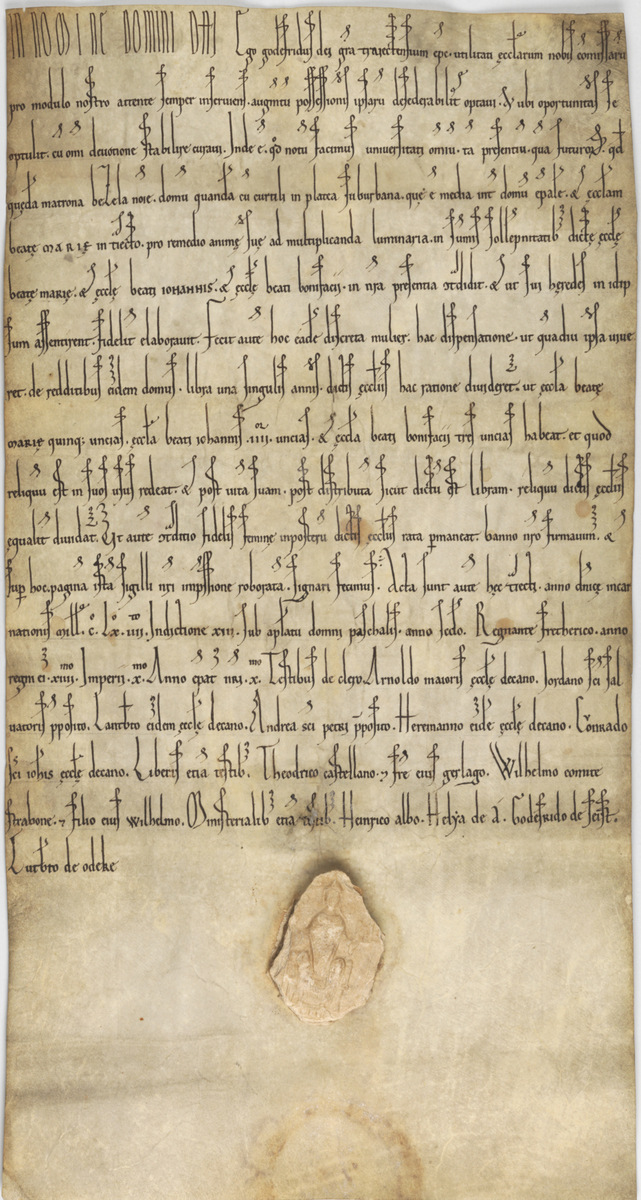 IN NOMINE DOMINI DEI Ego godefridus dei gra traiectensium epc. utilitati ęcclarum nobis comissarū
pro modulo nostro attente semper inservieni. augmtū possessionis ipsarū desiderabilit optavi. & ubi oportunitas se
optulit. cū omi devotione stabilire curavi. Inde ē. qd notū facimus universitati omniū. tā presentiū. quā futuroꝝ. qd
quędā matrona bezela noīe. domū quandā cū curtili in platea suburbana. quę ē media int domū ep̄ale. & ęcclam
beatę MARIĘ in traiecto. pro remedio animę suę ad multiplicanda luminaria. in summis sollepnitatib dictę ęcclę
beatę MARIĘ. & ęcclę beati IOHANNIS. & ęcclę beati bonifacii. in nr̄a presentia ctdidit. & ut sui hęredes in idip
sum assentirent. fidelit elaboravit. Fecit autē hoc eadē discreta mulier. hac dispensatione. ut quādiu ipsa vive
ret. de redditibus eidem domus. librā unā singulis annis. dictis ęccliis hac ratione divideret. ut ęccla beatę
MARIĘ quinq; uncias. ęccla beati iohannis. IIII. uncias. & ęccla beati bonifacii tres uncias habeat. et quod
reliquū est in suos usus redeat. & post vitā suam. post distributā sicut dictū est libram. reliquū dictis ęccliis
ęqualit dividat. Ut autē ctditio fidelis feminę inposterū dictis ęccliis rata pmaneat. banno nr̄o firmavim. &
sup hoc. pagina ista sigilli nr̄i imp̄ssione roborata. signari fecimus. Acta sunt autē hęc tiecti. anno dn̄icę incar
nationis mill. c. lx. IIII. Indictione XIII. sub ap̄latu domni paschalis. anno scdo. Regnante fretherico. anno
regni ei XIIII. Imperii. x. Anno epat nr̄i. x. Testibus de clero. Arnoldo maioris ęcclę decano. Iordano sci sal
vatoris pposito. Lantbto eidem ęcclę decano. Andrea sci petri pposito. Heremanno eidē ęcclę decano. Conrado
sci iohis ęcclę decano. Liberis etiā testib. Theodrico castellano. & fre eius gislago. Wilhelmo comite
strabone. & filio eius wilhelmo. Ministerialib etiā Heinrico albo. Helya de A. Godefrido de
Lutbto de odeke